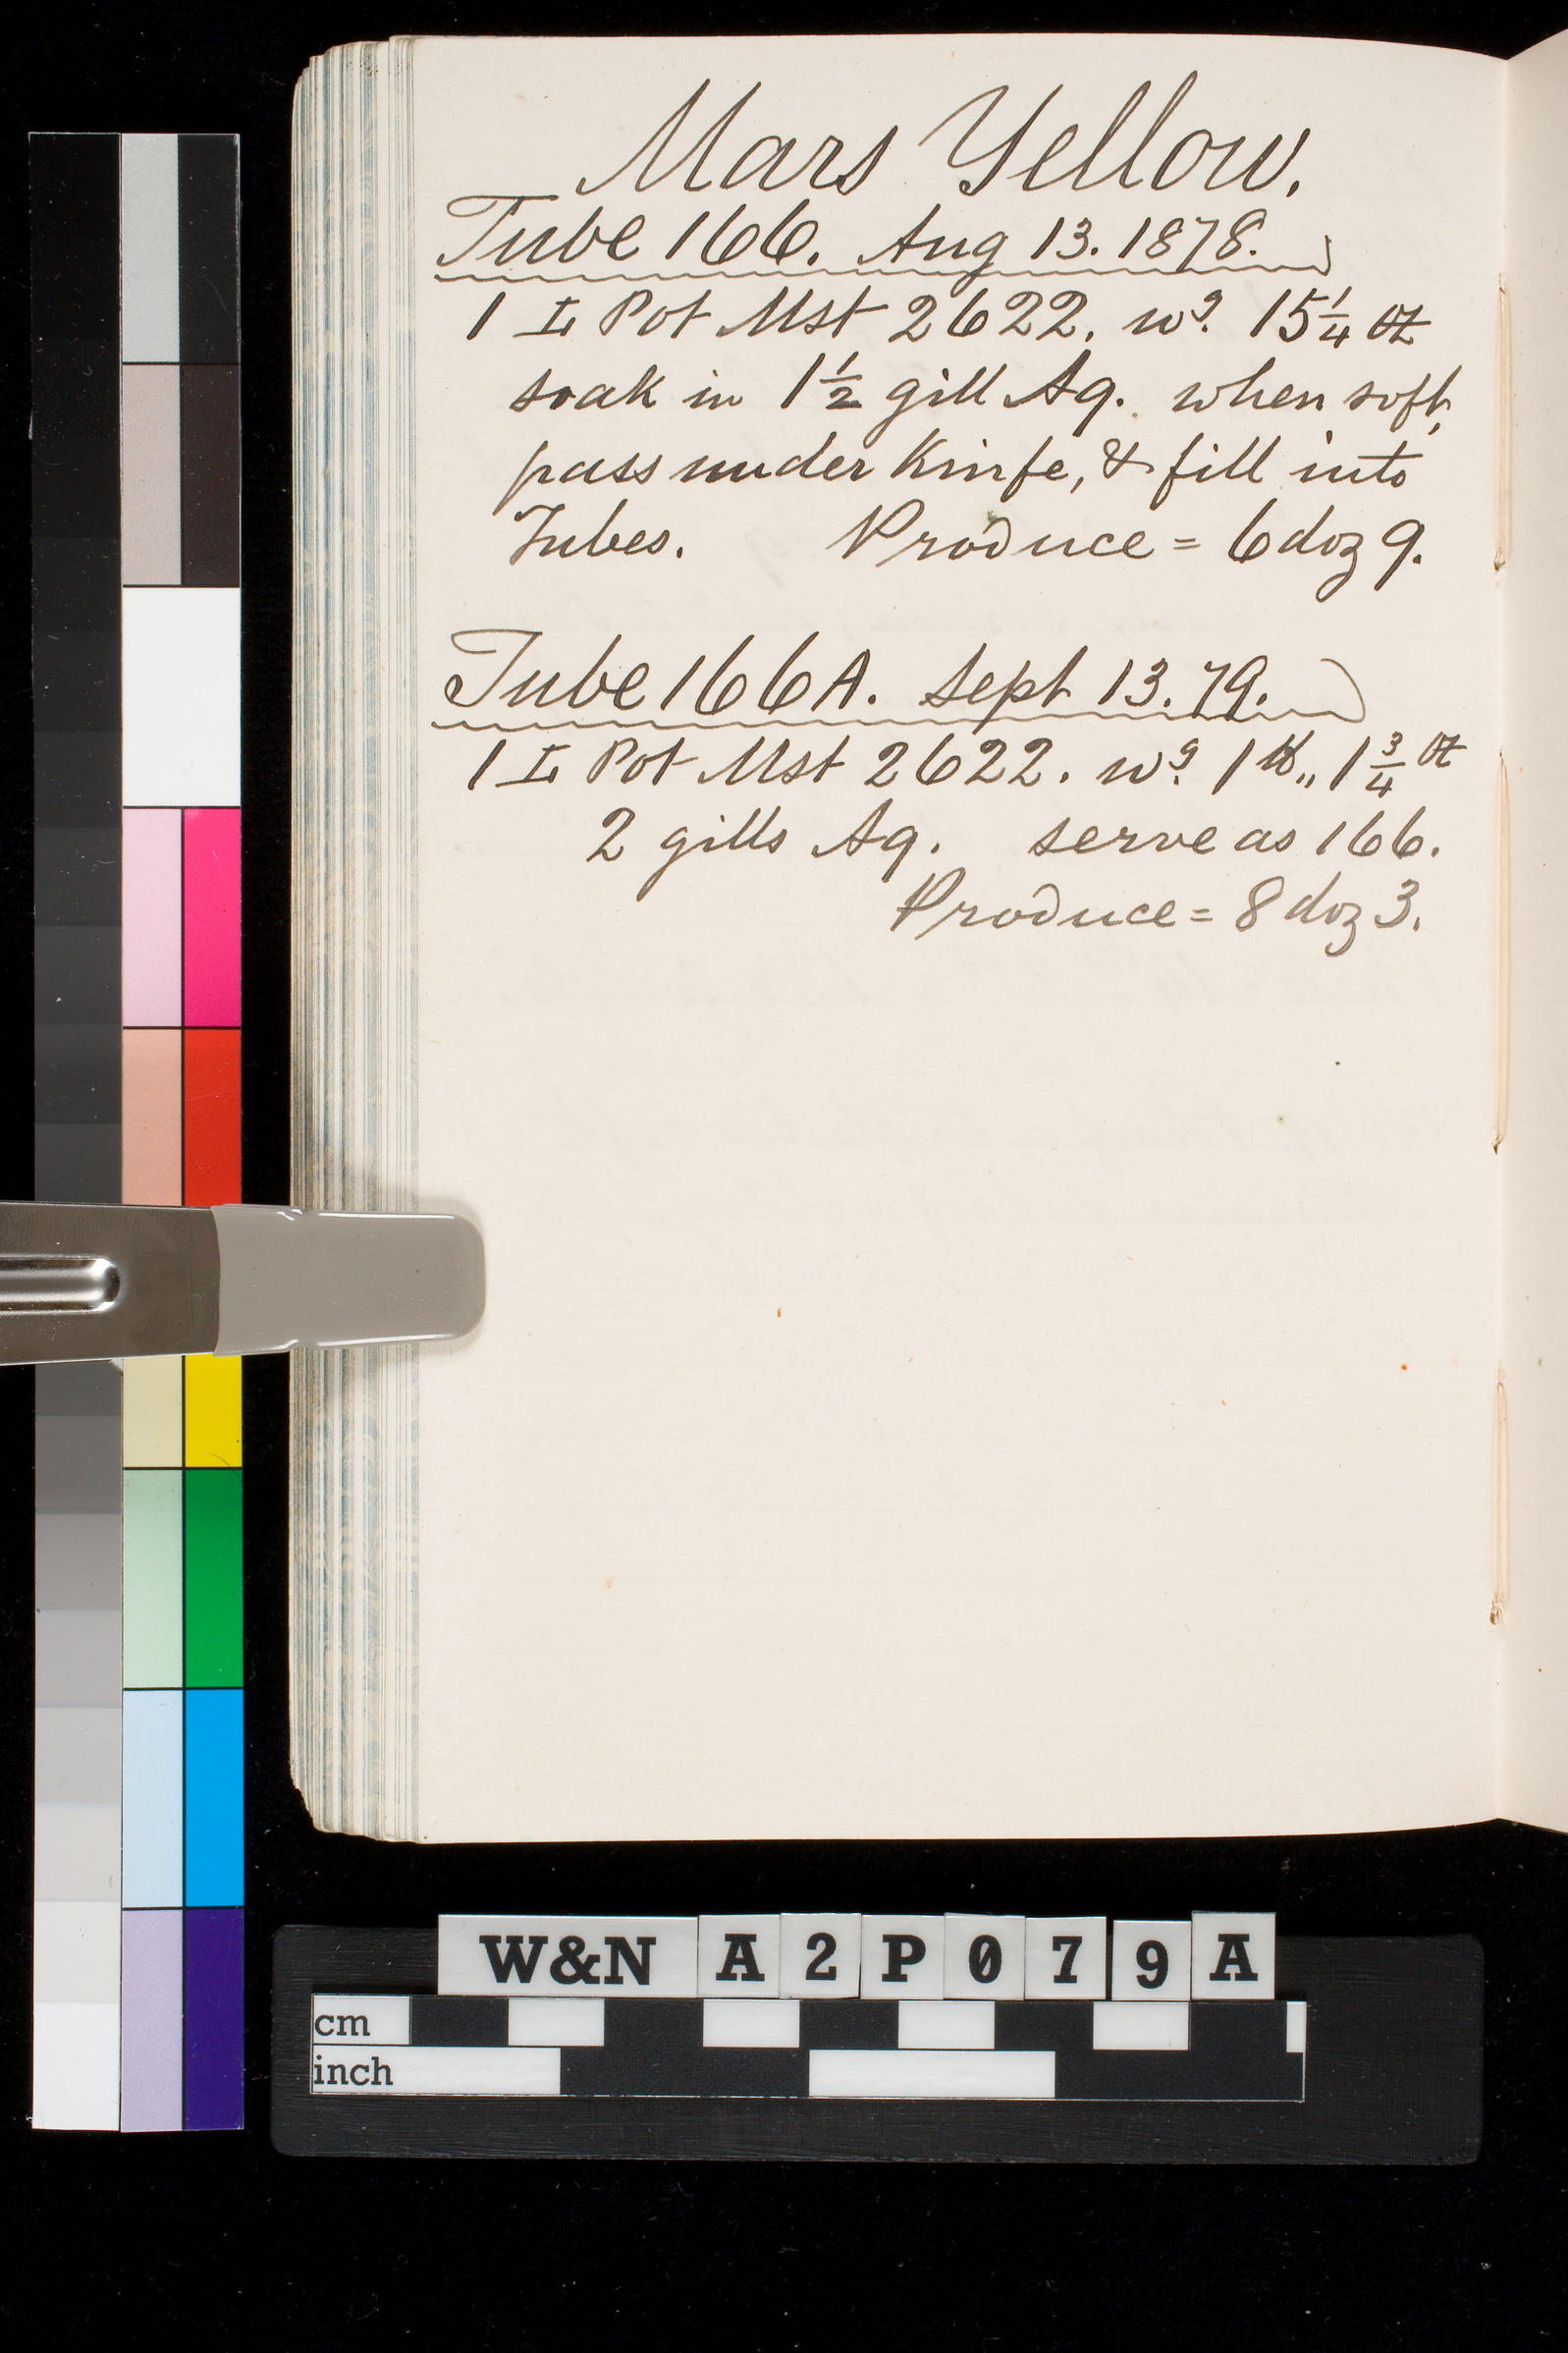 Mars Yellow.
Tube 166. Aug 13. 1878.
1 L Pot Mst 2622. wg. 15 1/4 oz
soak in 1 1/2 gill Aq. when soft,
pass under Knife, & fill into
Tubes. Produce = 6 doz 9.
Tube 166A. Sept 13. 79.
1 L Pot Mst 2622. wg. 1 lb,, 1 3/4 oz
2 gills Aq. serve as 166.
Produce = 8 doz 3.
W&N A2P079A
cm
inch